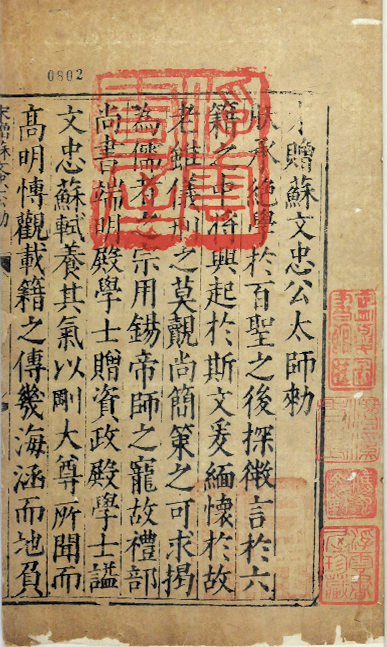 0802
宋贈蘇文忠公太師勑
朕承絶學於百聖之後探微言於六
籍之中將興起於斯文爰緬懷於故
老雖儀刑之莫覿尚簡策之可求揭
為儒者之宗用錫帝師之寵故禮部
尚書端明殿學士贈資政殿學士謚
文忠蘇軾養其氣以剛大尊所聞而
髙明博觀載籍之傳幾海涵而地負
宋贈蘇文忠公勑